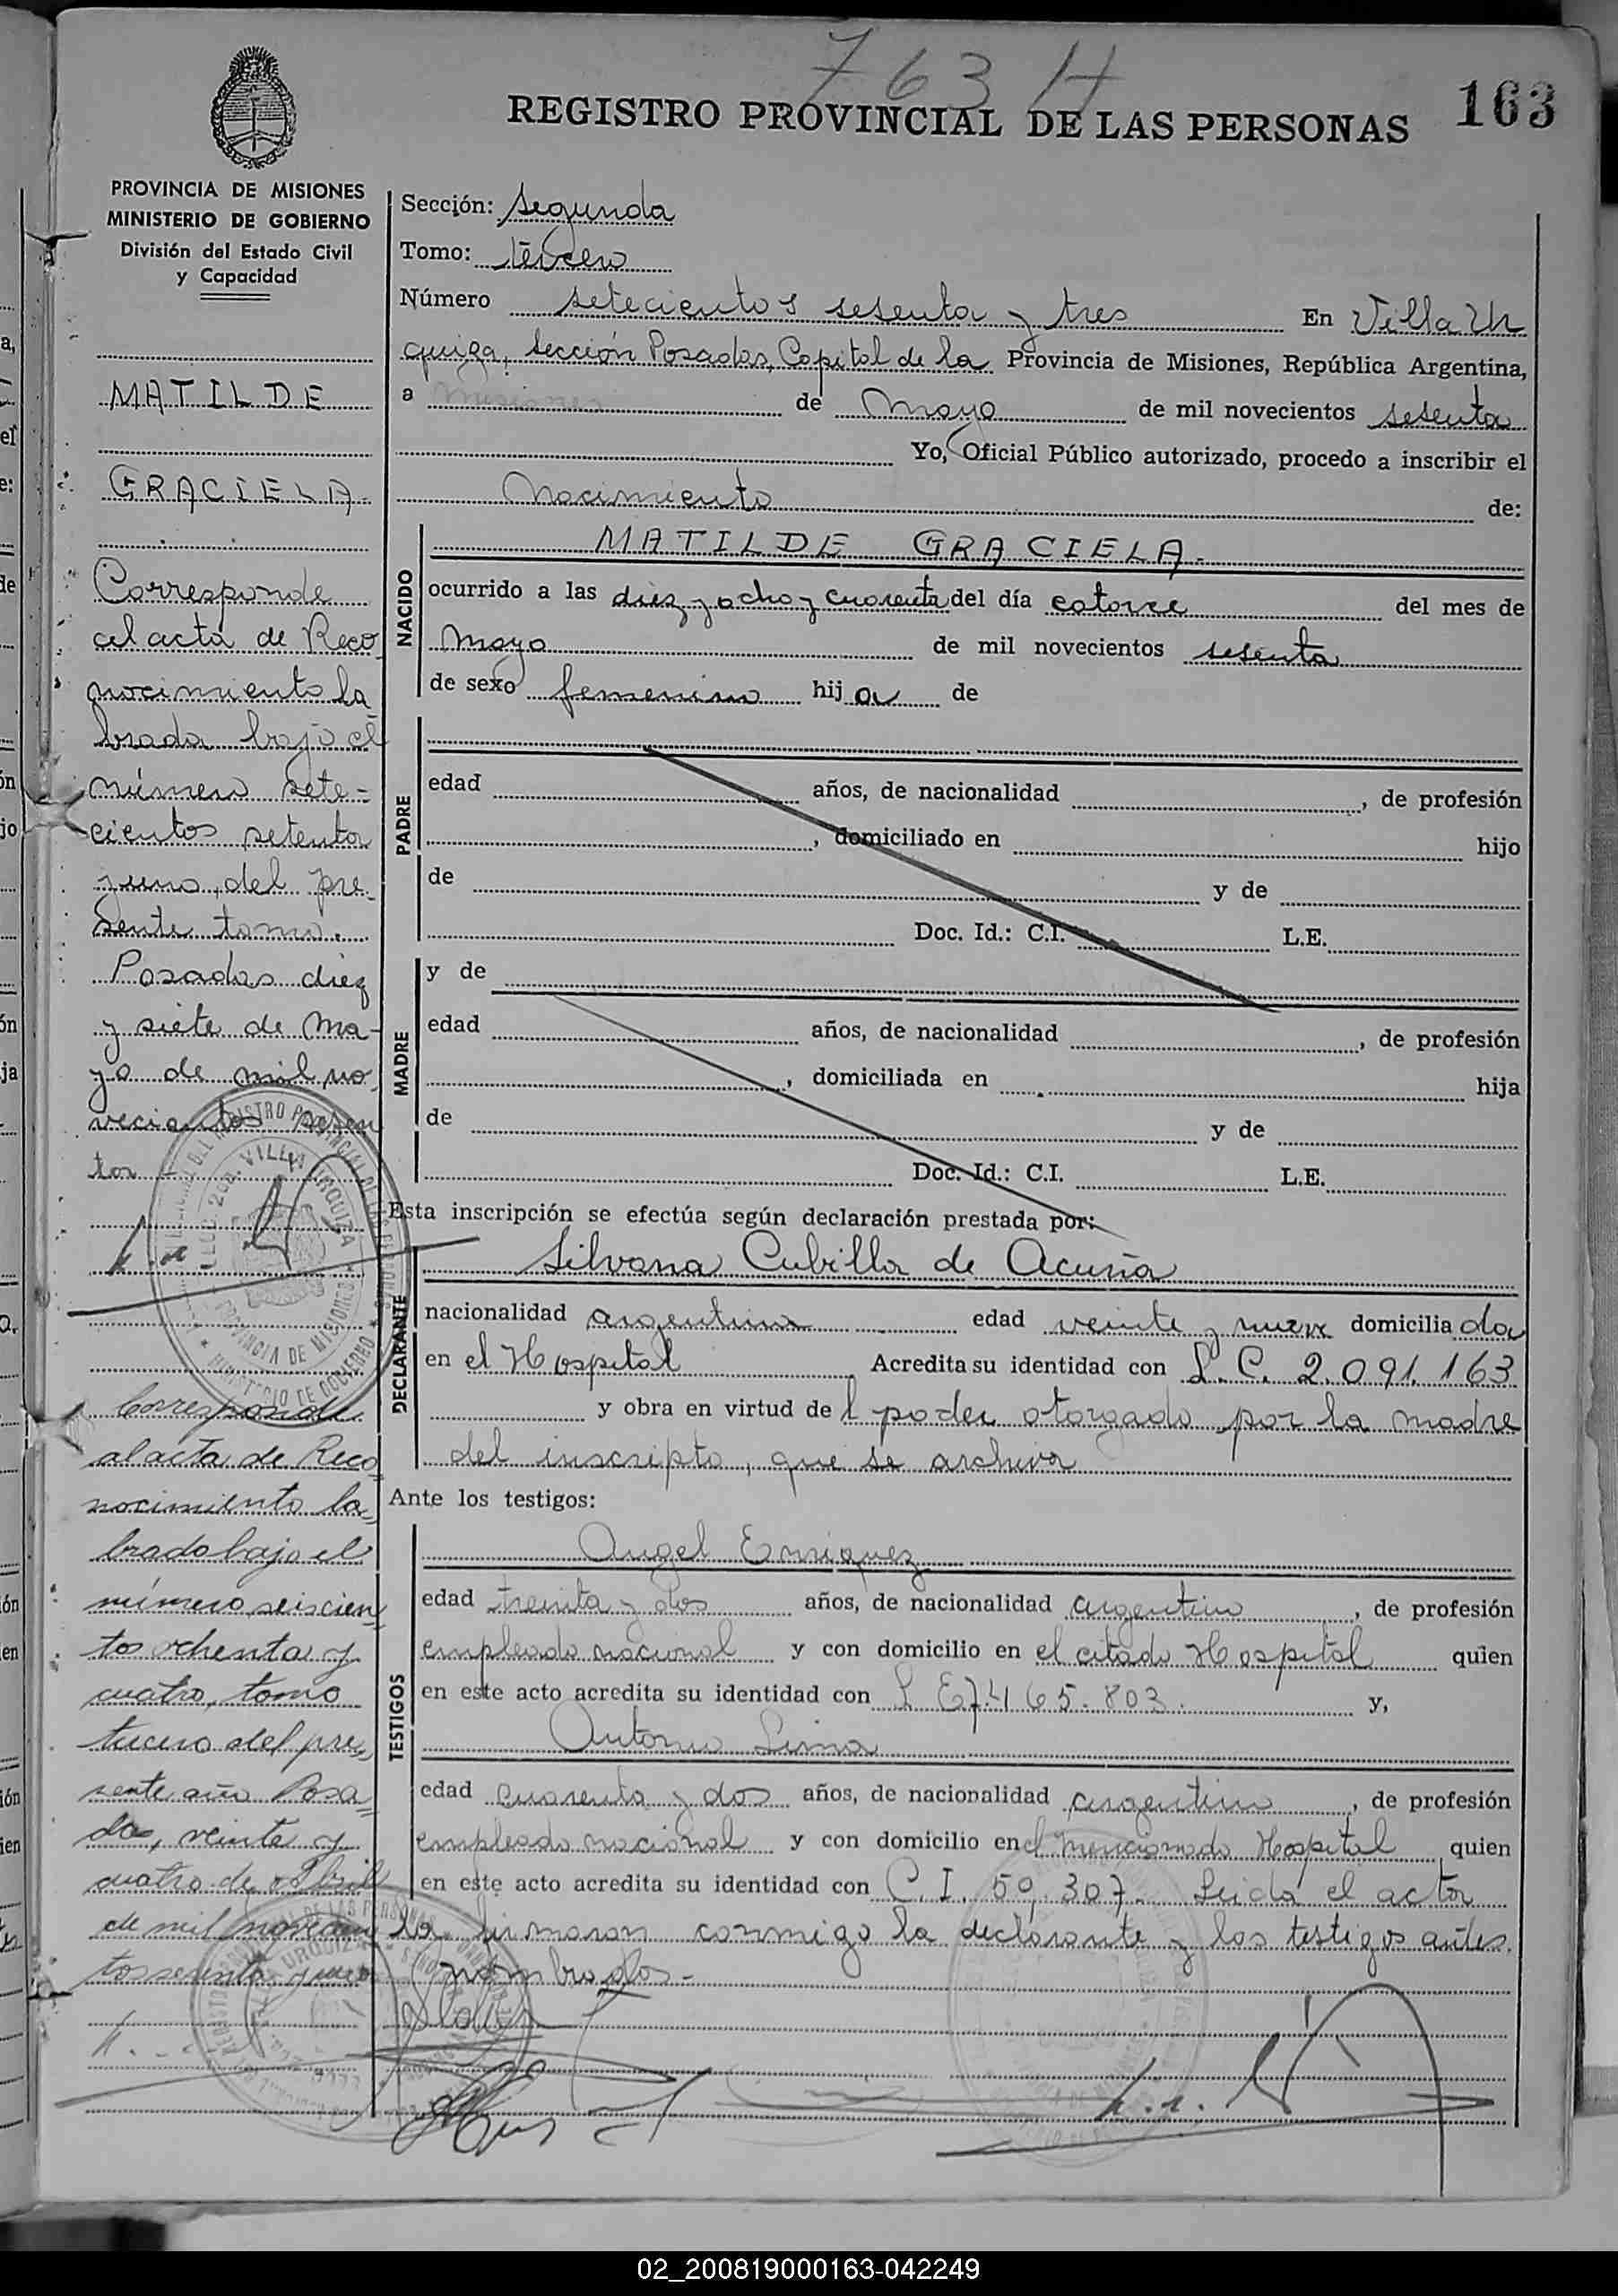 763 H
REGISTRO PROVINCIAL DE LAS PERSONAS 163
PROVINCIA DE MISIONES
MINISTERIO DE GOBIERNO
División del Estado Civil
y Capacidad
MATILDE
GRACIELA
Corresponde
al acta de Reco
nocimiento la
brada bajo el
número sete=
cientos setenta
y uno, del pre-
sente tomo.
Posadas diez
y siete de ma-
yo de mil no
vecientos sesen
ta
Corresponde
al acta de Reco
nocimiento la
brado bajo el
número seiscien
to ochenta y
cuatro, tomo
tercero del pre
sente año Posa
das, veinte y
cuatro de Abril
de mil novecien
tos sesenta y uno
Sección: Segunda
Tomo: tercero
Número setecientos sesenta y tres En Villa Ur
quiza, sección Posadas, Capital de la Provincia de Misiones, República Argentina,
a Misiones de mayo de mil novecientos sesenta
Yo, Oficial Público autorizado, procedo a inscribir el
Nacimiento de:
NACIDO
MATILDE GRACIELA.-
ocurrido a las diez y ocho y cuarenta del día catorce del mes de
mayo de mil novecientos sesenta
de sexo femenino hija de
PADRE
edad años, de nacionalidad , de profesión
, domiciliado en hijo
de y de
Doc. Id.: C.I. L.E.
MADRE
y de
edad años, de nacionalidad , de profesión
, domiciliada en hija
de y de
Doc. Id.: C.I. L.E.
Esta inscripción se efectúa según declaración prestada por:
DECLARANTE
Silvana Cubilla de Acuña
nacionalidad argentina edad veinte y nueve domiciliada
en el Hospital Acredita su identidad con L.C. 2.091.163
y obra en virtud del poder otorgado por la madre
del inscripto, que se archiva
Ante los testigos:
TESTIGOS
Angel Enriquez
edad treinta y dos años, de nacionalidad argentino , de profesión
empleado nacional y con domicilio en el citado Hospital quien
en este acto acredita su identidad con L E 7.465.803. y,
Antonio Lima
edad cuarenta y dos años, de nacionalidad argentino , de profesión
empleado nacional y con domicilio en el mencionado Hospital quien
en este acto acredita su identidad con C.I. 50,307. Leida el acta
la firmaron conmigo la declarante y los testigos antes
nombrados.-
02_200819000163-042249